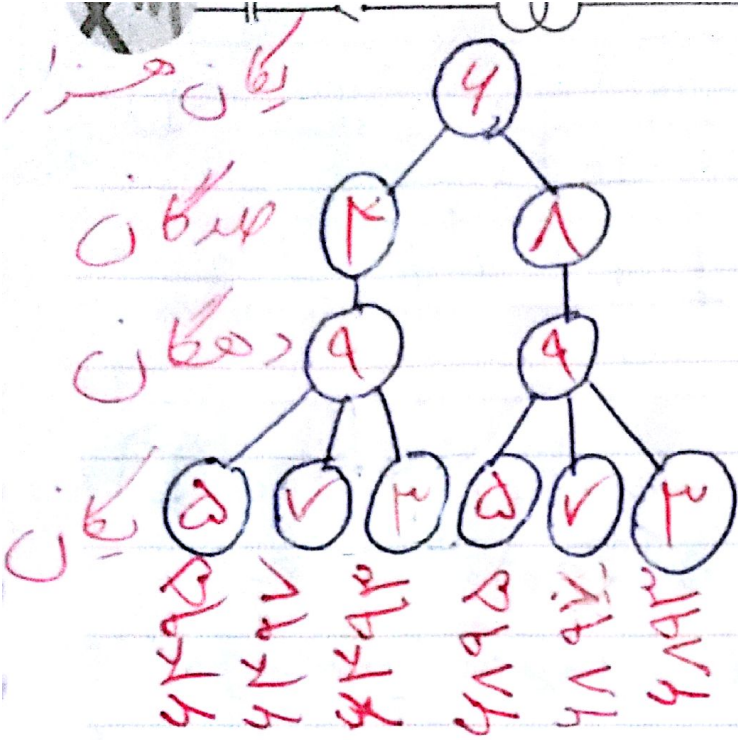 یکان هزار ۶
صدگان ۴ ۸
دهگان ۹ ۹
یکان ۵ ۷ ۳ ۵ ۷ ۳
۶۴۹۵ ۶۴۹۷ ۶۴۹۳ ۶۸۹۵ ۶۸۹۷ ۶۸۹۳